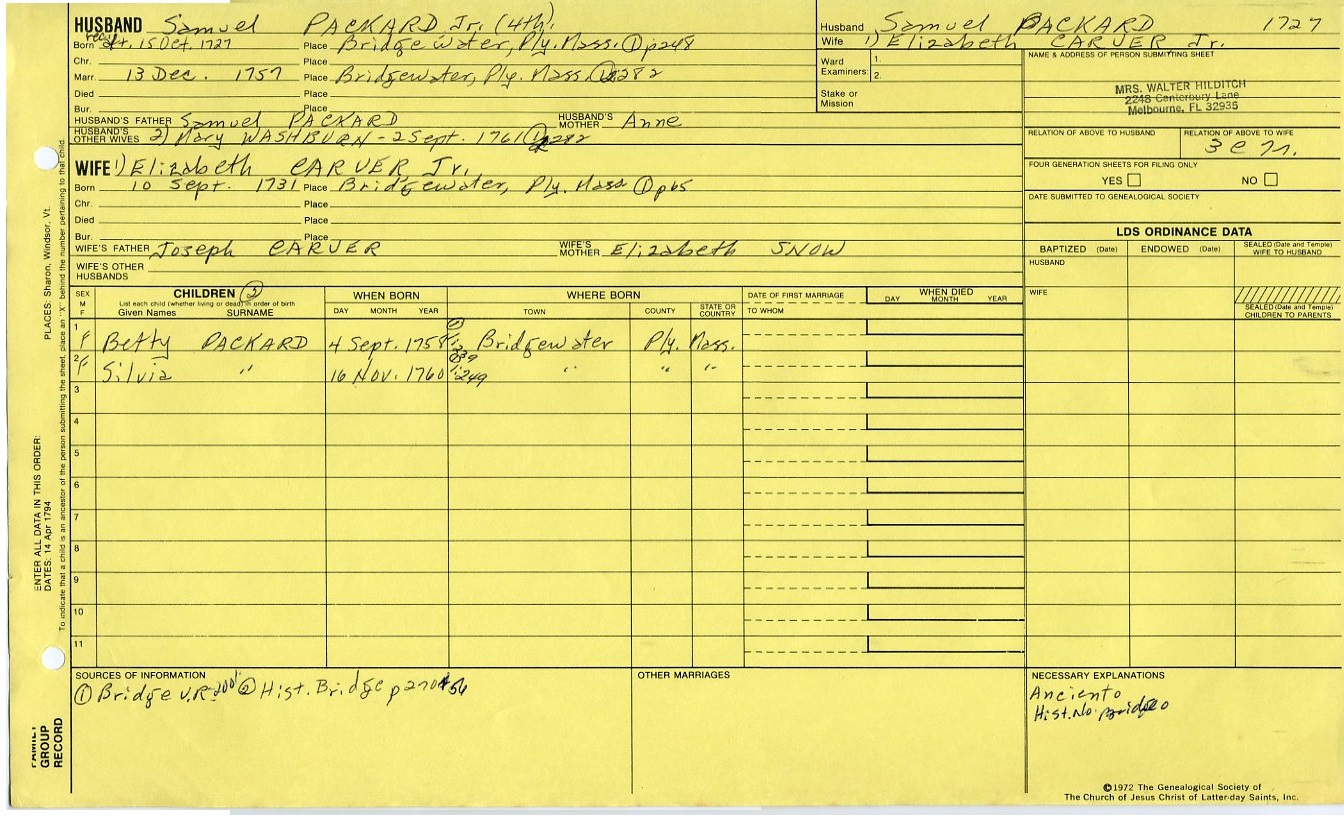 HUSBAND Samuel PACKARD Jr. (4th).
Born 15 Oct. 1727 Place Bridgewater, Ply. Mass. ① p248
Chr. Place
Marr. 13 Dec. 1757 Place Bridgewater, Ply. Mass. 282
Died Place
Bur. Place
HUSBAND'S FATHER Samuel PACKARD HUSBAND'S MOTHER Anne
HUSBAND'S OTHER WIVES 2) Mary WASHBURN - 2 Sept. 1761 282
WIFE 1) Elizabeth CARVER, Jr.
Born 10 Sept. 1731 Place Bridgewater, Ply. Mass ① p65
Chr. Place
Died Place
Bur. Place
WIFE'S FATHER Joseph CARVER WIFE'S MOTHER Elizabeth SNOW
WIFE'S OTHER HUSBANDS
Husband Samuel PACKARD 1727
Wife 1) Elizabeth CARVER Jr.
Ward Examiners: 1.
2.
Stake or Mission
NAME & ADDRESS OF PERSON SUBMITTING SHEET
MRS. WALTER HILDITCH
2248 Canterbury Lane
Melbourne, FL 32935
RELATION OF ABOVE TO HUSBAND RELATION OF ABOVE TO WIFE
FOUR GENERATION SHEETS FOR FILING ONLY
YES NO
DATE SUBMITTED TO GENEALOGICAL SOCIETY
LDS ORDINANCE DATA
BAPTIZED (Date) ENDOWED (Date) SEALED (Date and Temple) WIFE TO HUSBAND
HUSBAND
WIFE
SEALED (Date and Temple) CHILDREN TO PARENTS
SEX M F CHILDREN WHEN BORN WHERE BORN DATE OF FIRST MARRIAGE WHEN DIED
List each child (whether living or dead) in order of birth
Given Names SURNAME DAY MONTH YEAR TOWN COUNTY STATE OR COUNTRY TO WHOM DAY MONTH YEAR
1 F Betty PACKARD 4 Sept. 1758 Bridgewater Ply. Mass.
2 F Silvia " 16 Nov. 1760 1:249 " " "
3
4
5
6
7
8
9
10
11
SOURCES OF INFORMATION
① Bridge V.R. ② Hist. Bridge p270
OTHER MARRIAGES
NECESSARY EXPLANATIONS
Anciento
Hist. No.
©1972 The Genealogical Society of
The Church of Jesus Christ of Latter-day Saints, Inc.
PLACES: Sharon, Windsor, Vt.
ENTER ALL DATA IN THIS ORDER:
DATES: 14 Apr 1794
To indicate that a child is an ancestor of the person submitting the sheet, place an "X" behind the number pertaining to that child.
FAMILY GROUP RECORD